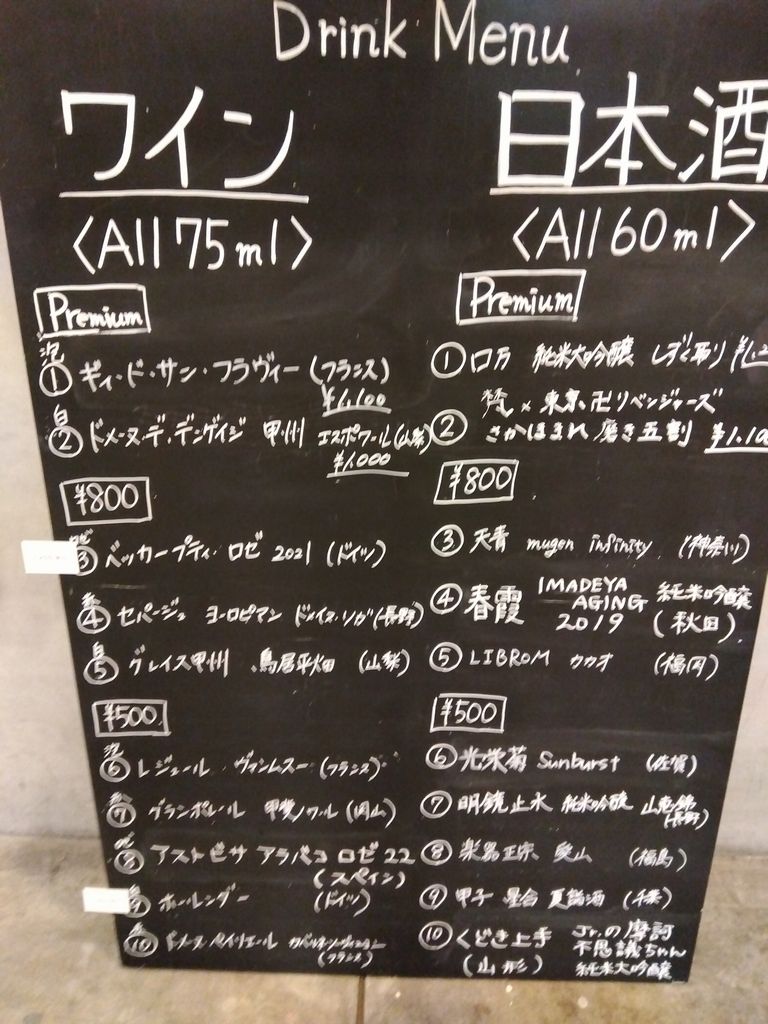 Drink Menu
ワイン
〈All 75ml〉
Premium
泡
① ギィ・ド・サン・フラヴィー (フランス)
¥1,100
白
② ドメーヌ・デ・デンゲイジ 甲州 エスポワール(山梨)
¥1,000
¥800
ロゼ
③ ベッカープティ ロゼ 2021 (ドイツ)
赤
④ セパージュ ヨーロピアン ドメイヌ・ソガ(長野)
白
⑤ グレイス甲州 鳥居平畑 (山梨)
¥500
泡
⑥ レジュール ヴァンムスー (フランス)
赤
⑦ グランポレール 甲斐ノワール (岡山)
ロゼ
⑧ アストビサ アラバコ ロゼ 22
(スペイン)
白
⑨ ホーレンダー (ドイツ)
赤
⑩ ドメーヌ
(フランス)
日本酒
〈All 60ml〉
Premium
① 口万 純米大吟醸 しずく取り ¥1,2
梵 × 東京卍リベンジャーズ
② さかほまれ 磨き五割 ¥1,100
¥800
③ 天青 mugen infinity (神奈川)
④ 春霞 IMADEYA AGING 2019 純米吟醸 (秋田)
⑤ LIBROM カカオ (福岡)
¥500
⑥ 光栄菊 Sunburst (佐賀)
⑦ 明鏡止水 純米吟醸 山恵錦
(長野)
⑧ 楽器正宗 (福島)
⑨ 甲子 星合 夏譜酒 (千葉)
⑩ くどき上手 Jr.の摩訶
不思議ちゃん
(山形) 純米大吟醸